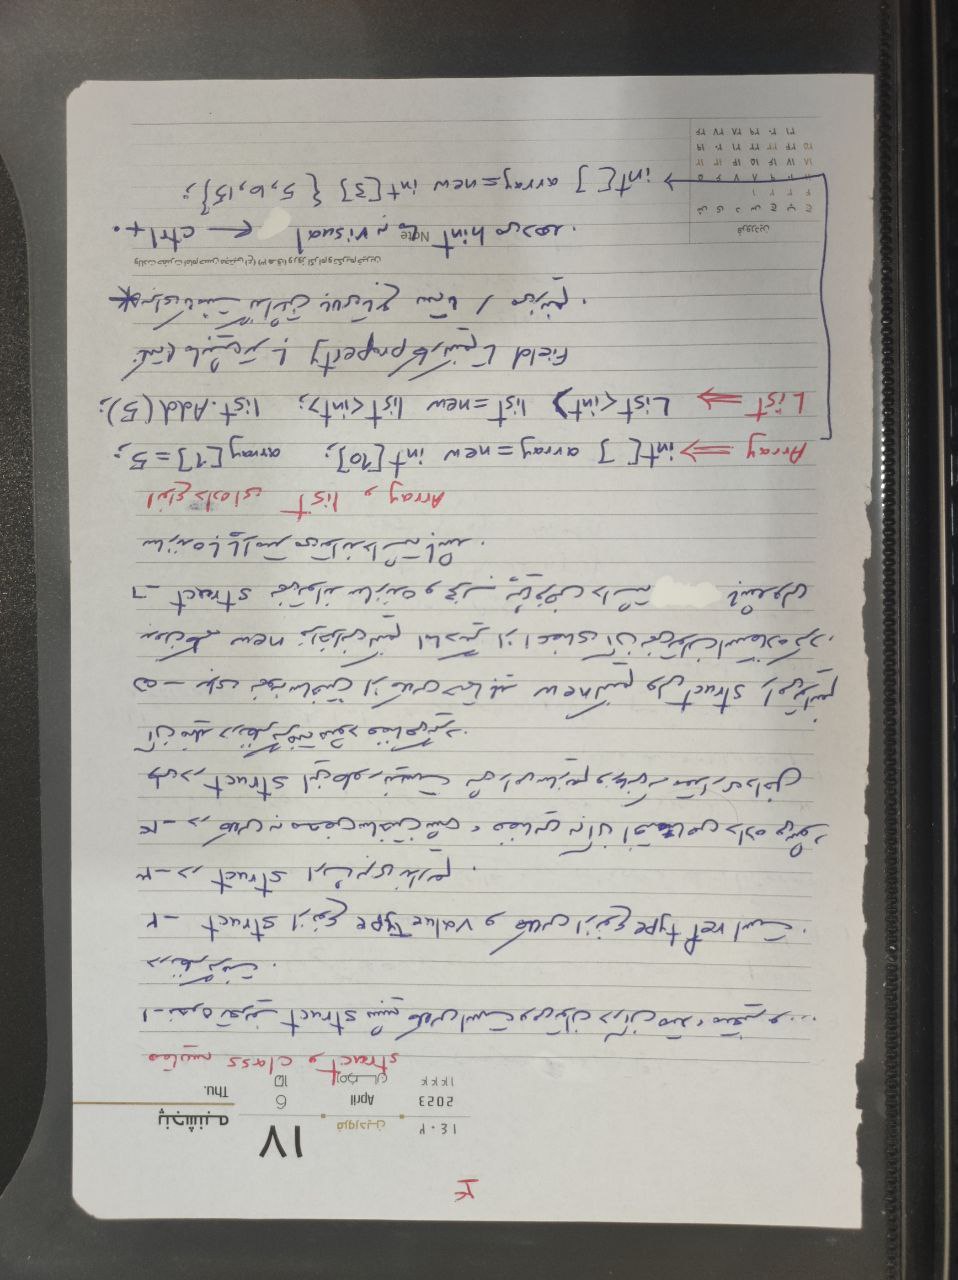 ۴
۱۷
پنجشنبه
۱۴۰۲ فروردین
2023 April 6
Thu.
۱۴۴۴ رمضان 15
مقایسه class و struct
۱- نحوه تعریف struct شبیه کلاس است و می‌توان در آن متد، متغیر و...
در نظر گرفت .
۲- struct از نوع value Type و کلاس از نوع ref type است .
۳- در struct ارث بری نداریم .
۴- در کلاس به محض ساختن شی ، فضایی به آن اختصاص داده می‌شود
ولی در struct این طور نیست شی را می سازیم و زمانی که مقداری داخل
آن فیلد در نظر گرفته میشود فضا می‌گیرد.
۵- برای نمونه ساختن از کلاس حتما باید new کنیم ولی struct را می‌توانیم
بدون کلمه new فراخوانی کنیم اما دیگر از اعضای آن نمی‌توان استفاده کرد.
۶- struct نمی‌تواند سازنده و مخرب پیش فرض داشته باشد ولی
سازنده با پارامتر می‌تواند داشته باشد .
انواع داده ای list و Array
Array ⟹ int[ ] array = new int[10]; array[1] = 5;
List ⟹ List<int> list = new list<int>; list.Add(5);
نکته) ما بیشتر با property کار کنیم تا Field
*برای کامنت گذاشتن بالای تابع سه تا / می‌زنیم .
ولادت حضرت امام حسن مجتبی (ع) (۳ ه‍.ق) و روز اکرام و تکریم خیرین
Note
ctrl + . ← visual به ما hint می‌دهد .
int[ ] array = new int[3] { 5, 10, 15};
فروردین
ش ی د س چ پ ج
۱ ۲ ۳ ۴
۵ ۶ ۷ ۸ ۹ ۱۰
۱۲ ۱۳ ۱۴ ۱۵ ۱۶ ۱۷ ۱۸
۱۹ ۲۰ ۲۱ ۲۲ ۲۳ ۲۴ ۲۵
۲۶ ۲۷ ۲۸ ۲۹ ۳۰ ۳۱